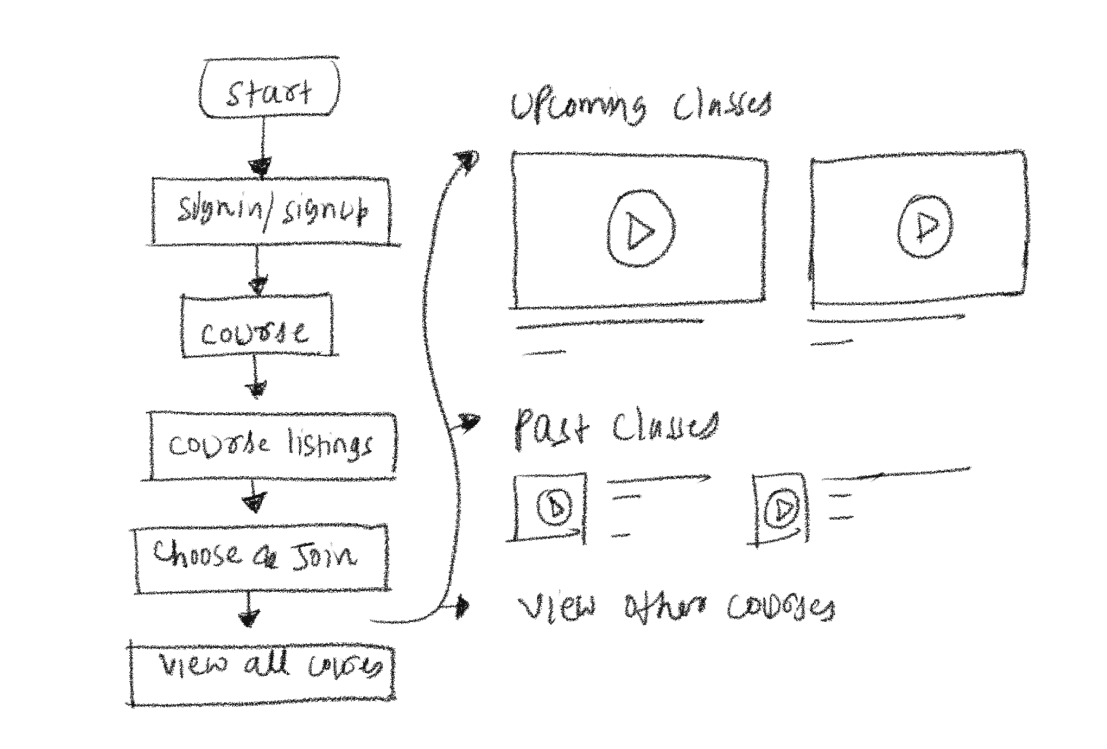 start
signin/signup
course
course listings
choose & Join
view all corses
upcoming classes
Past classes
view other courses